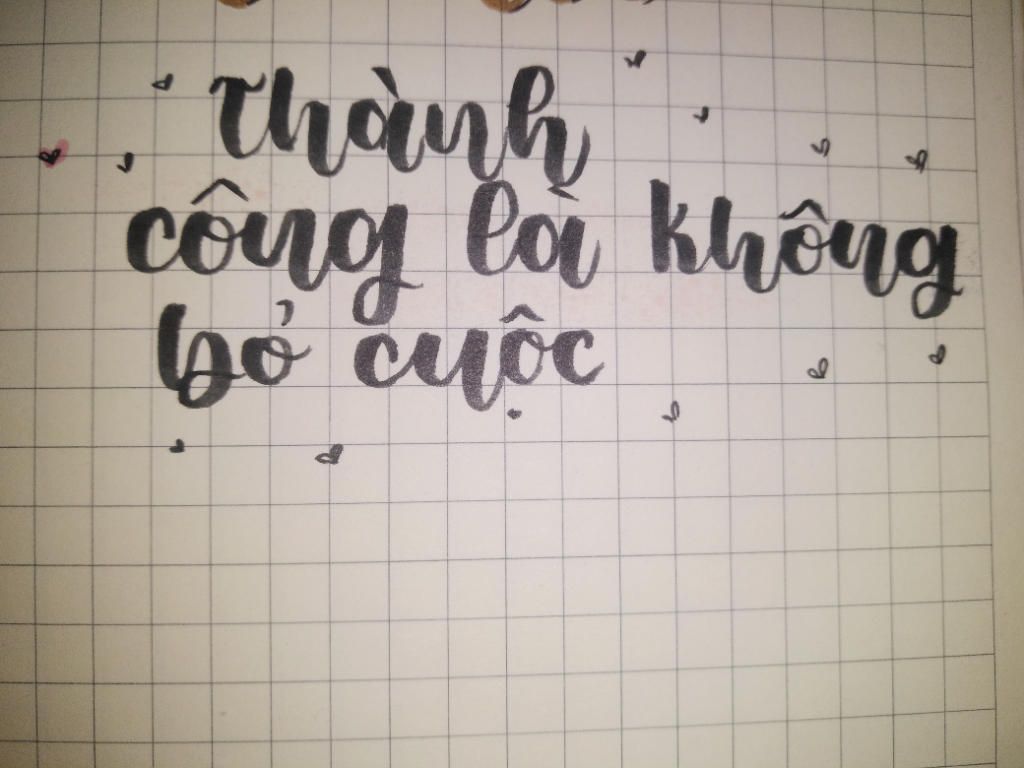 Thành
công là không
bỏ cuộc